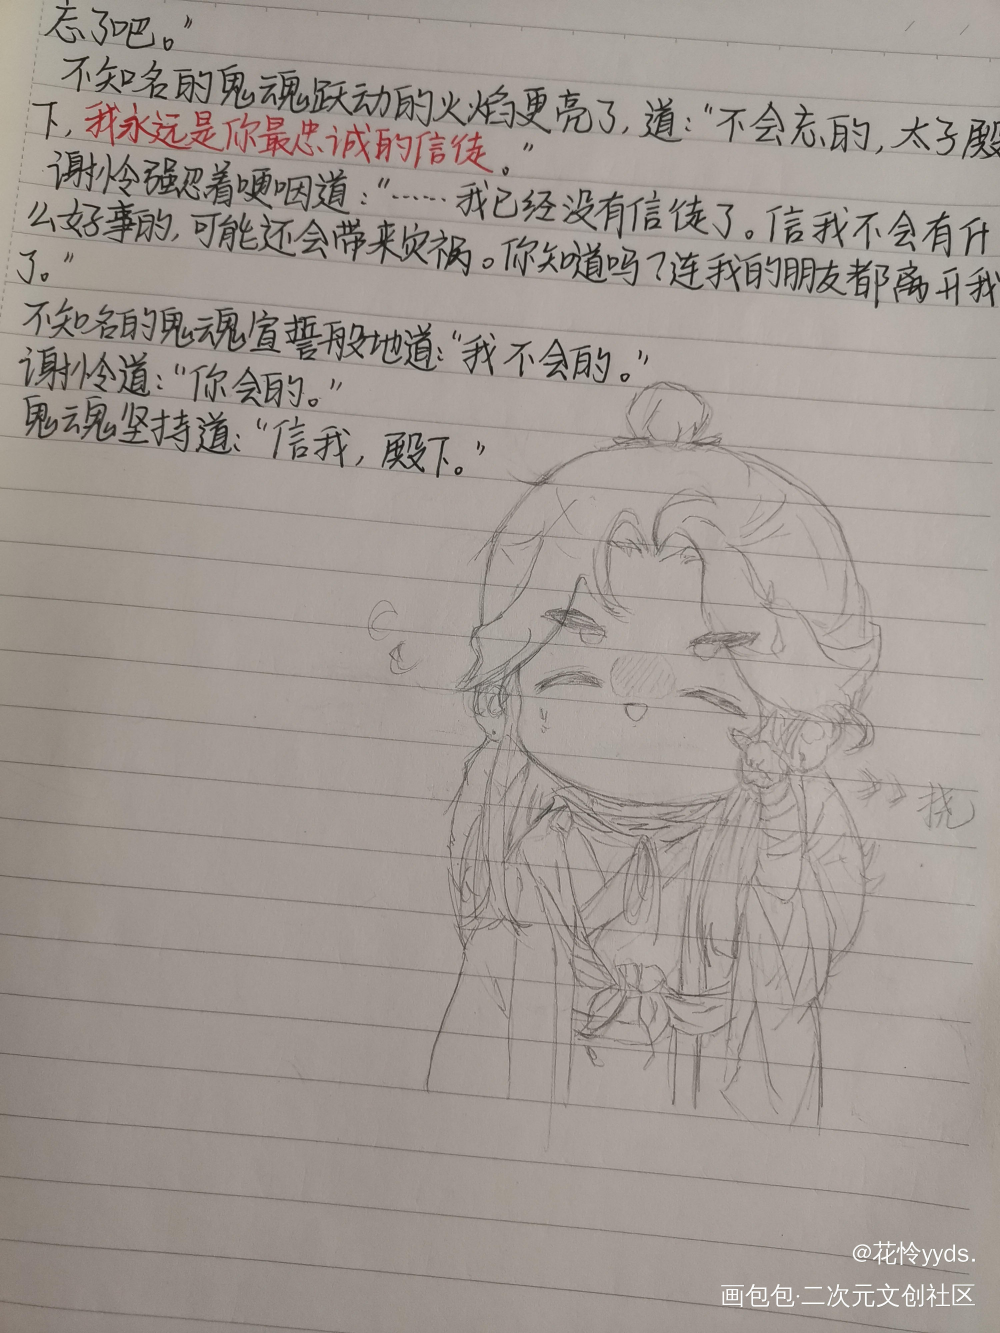 忘了吧。”
不知名的鬼魂跃动的火焰更亮了，道：“不会忘的，太子殿
下，我永远是你最忠诚的信徒。”
谢怜强忍着哽咽道：“……我已经没有信徒了。信我不会有什
么好事的，可能还会带来灾祸。你知道吗？连我的朋友都离开我
了。”
不知名的鬼魂宣誓般地道：“我不会的。”
谢怜道：“你会的。”
鬼魂坚持道：“信我，殿下。”
挠
@花怜yyds.
画包包·二次元文创社区